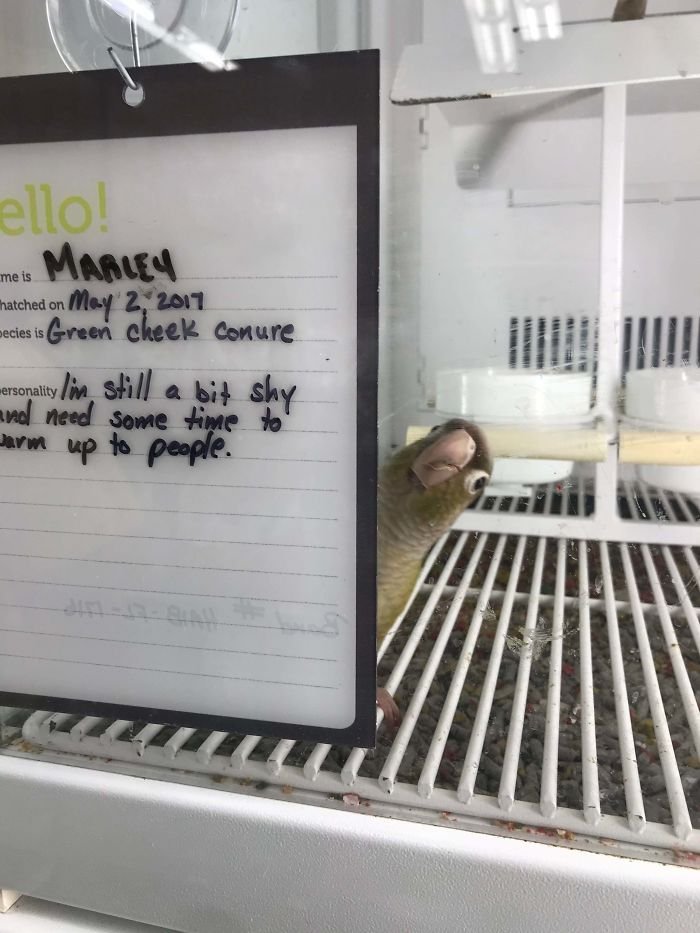 ello!
me is MARLEY
hatched on May 2, 2017
ecies is Green cheek conure
ersonality I'm still a bit shy
and need some time to
warm up to people.
Band # HAIB-FL-1716